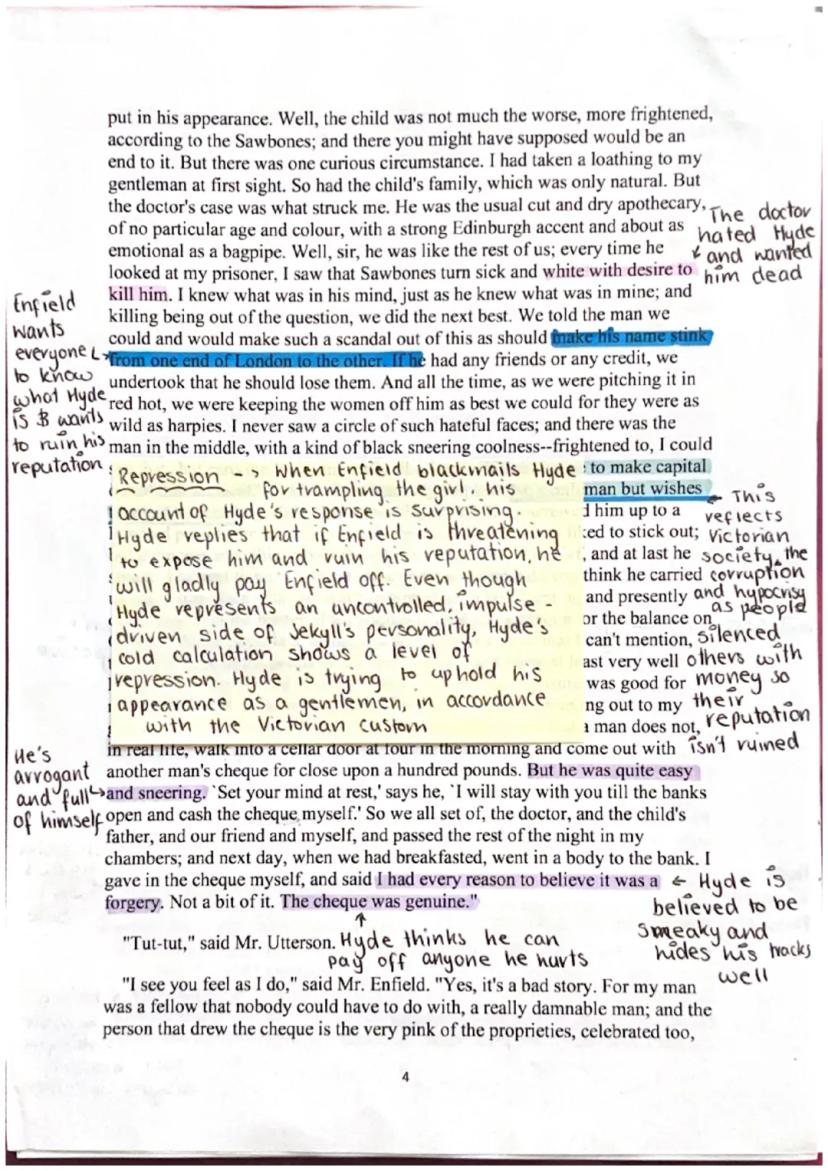 put in his appearance. Well, the child was not much the worse, more frightened,
according to the Sawbones; and there you might have supposed would be an
end to it. But there was one curious circumstance. I had taken a loathing to my
gentleman at first sight. So had the child's family, which was only natural. But
the doctor's case was what struck me. He was the usual cut and dry apothecary,
of no particular age and colour, with a strong Edinburgh accent and about as
emotional as a bagpipe. Well, sir, he was like the rest of us; every time he
looked at my prisoner, I saw that Sawbones turn sick and white with desire to
kill him. I knew what was in his mind, just as he knew what was in mine; and
killing being out of the question, we did the next best. We told the man we
could and would make such a scandal out of this as should make his name stink
from one end of London to the other. If he had any friends or any credit, we
undertook that he should lose them. And all the time, as we were pitching it in
red hot, we were keeping the women off him as best we could for they were as
wild as harpies. I never saw a circle of such hateful faces; and there was the
man in the middle, with a kind of black sneering coolness--frightened to, I could
The doctor
hated Hyde
and wanted
him dead
Enfield
wants
everyone
to know
what Hyde
is & wants
to ruin his
reputation
Repression -> When Enfield blackmails Hyde
for trampling the girl, his
account of Hyde's response is surprising.
Hyde replies that if Enfield is threatening
to expose him and ruin his reputation, he
will gladly pay Enfield off. Even though
Hyde represents an uncontrolled, impulse-
driven side of Jekyll's personality, Hyde's
cold calculation shows a level of
repression. Hyde is trying to uphold his
appearance as a gentlemen, in accordance
with the Victorian custom
to make capital
man but wishes
d him up to a
ed to stick out;
, and at last he
think he carried
and presently
or the balance on
can't mention,
ast very well
was good for
ng out to my
a man does not,
← This
reflects
Victorian
society, the
corruption
and hypocrisy
as people
silenced
others with
money so
their
reputation
isn't ruined
in real life, walk into a cellar door at four in the morning and come out with
another man's cheque for close upon a hundred pounds. But he was quite easy
and sneering. `Set your mind at rest,' says he, `I will stay with you till the banks
open and cash the cheque myself.' So we all set of, the doctor, and the child's
father, and our friend and myself, and passed the rest of the night in my
chambers; and next day, when we had breakfasted, went in a body to the bank. I
gave in the cheque myself, and said I had every reason to believe it was a
forgery. Not a bit of it. The cheque was genuine."
He's
arrogant
and full
of himself
← Hyde is
believed to be
sneaky and
hides his tracks
well
"Tut-tut," said Mr. Utterson.
Hyde thinks he can
pay off anyone he hurts
"I see you feel as I do," said Mr. Enfield. "Yes, it's a bad story. For my man
was a fellow that nobody could have to do with, a really damnable man; and the
person that drew the cheque is the very pink of the proprieties, celebrated too,
4